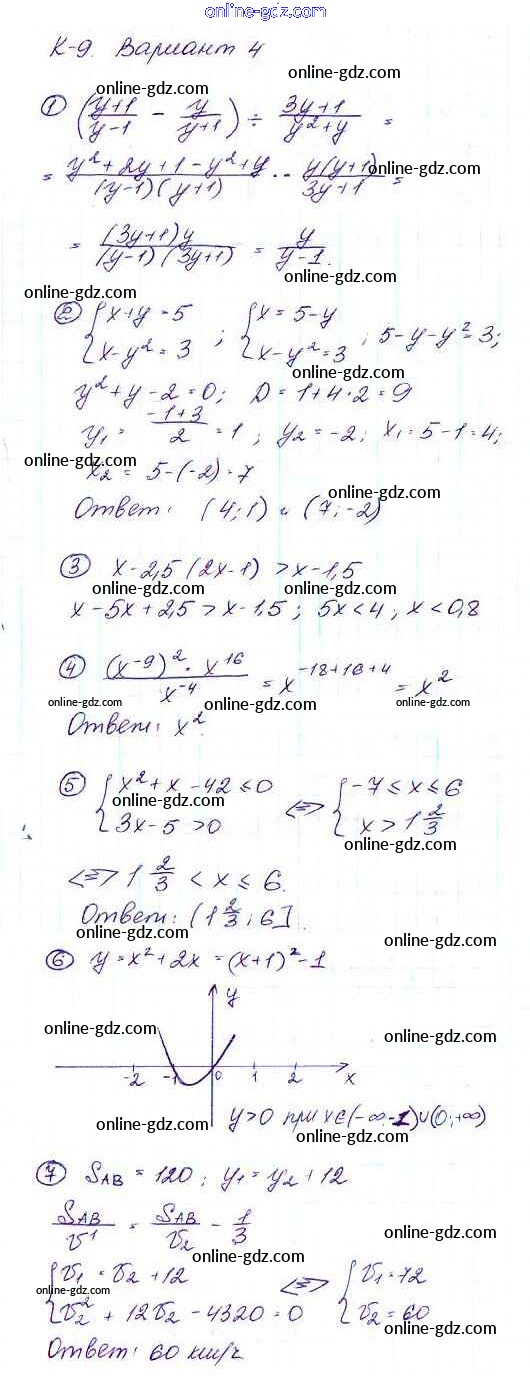 online-gdz.com
К-9. Вариант 4
online-gdz.com
online-gdz.com
① ((y+1)/(y-1) - y/(y+1)) ÷ (3y+1)/(y²+y) =
online-gdz.com
= (y²+2y+1-y²+y)/((y-1)(y+1)) · · y(y+1)/(3y+1) =
= (3y+1)y/((y-1)(3y+1)) = y/(y-1).
online-gdz.com
online-gdz.com
② { x+y=5 ; { x=5-y ; 5-y-y²=3;
{ x-y²=3 { x-y²=3
online-gdz.com
y²+y-2=0; D=1+4·2=9
y₁ = (-1+3)/2 = 1; y₂=-2; x₁=5-1=4;
online-gdz.com
x₂ = 5-(-2)=7
online-gdz.com
Ответ: (4;1) и (7;-2)
③ x-2,5(2x-1) >x-1,5
online-gdz.com online-gdz.com
x-5x+2,5>x-1,5; 5x<4, x<0,8
④ ((x⁻⁹)²·x¹⁶)/x⁻⁴ = x⁻¹⁸⁺¹⁶⁺⁴ = x²
online-gdz.com online-gdz.com online-gdz.com
Ответ: x².
⑤ { x²+x-42≤0 <=> { -7≤x≤6
online-gdz.com
{ 3x-5>0 { x>1 2/3
online-gdz.com
<=> 1 2/3 < x ≤ 6.
Ответ: (1 2/3; 6].
online-gdz.com
online-gdz.com
⑥ y=x²+2x=(x+1)²-1
y
online-gdz.com
online-gdz.com
-2 -1 0 1 2 x
y>0 при x∈(-∞;-1)∪(0;+∞)
online-gdz.com
online-gdz.com
⑦ S_AB = 120; y₁=y₂+12
S_AB/v¹ = S_AB/v₂ - 1/3
online-gdz.com
online-gdz.com
{ v₁=v₂+12 <=> { v₁=72
online-gdz.com
{ v₂²+12v₂-4320=0 { v₂=60
online-gdz.com
Ответ: 60 км/ч
online-gdz.com